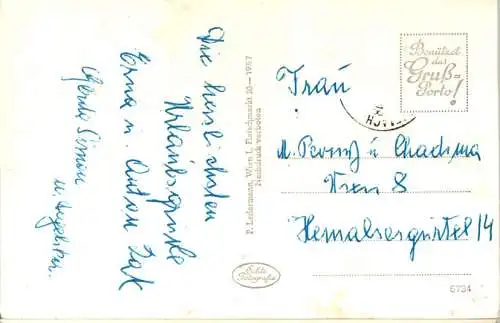 Die herzlichsten
Urlaubsgrüße
Erna u. Anton Zak
Gerda Simon
P. Ledermann, Wien I., Fleischmarkt 20—1957
Nachdruck verboten
Echte
Fotografie
Benützet
das
Gruß-
Porto!
Frau
M. u
Wien 8
Hernalsergürtel 14
5734